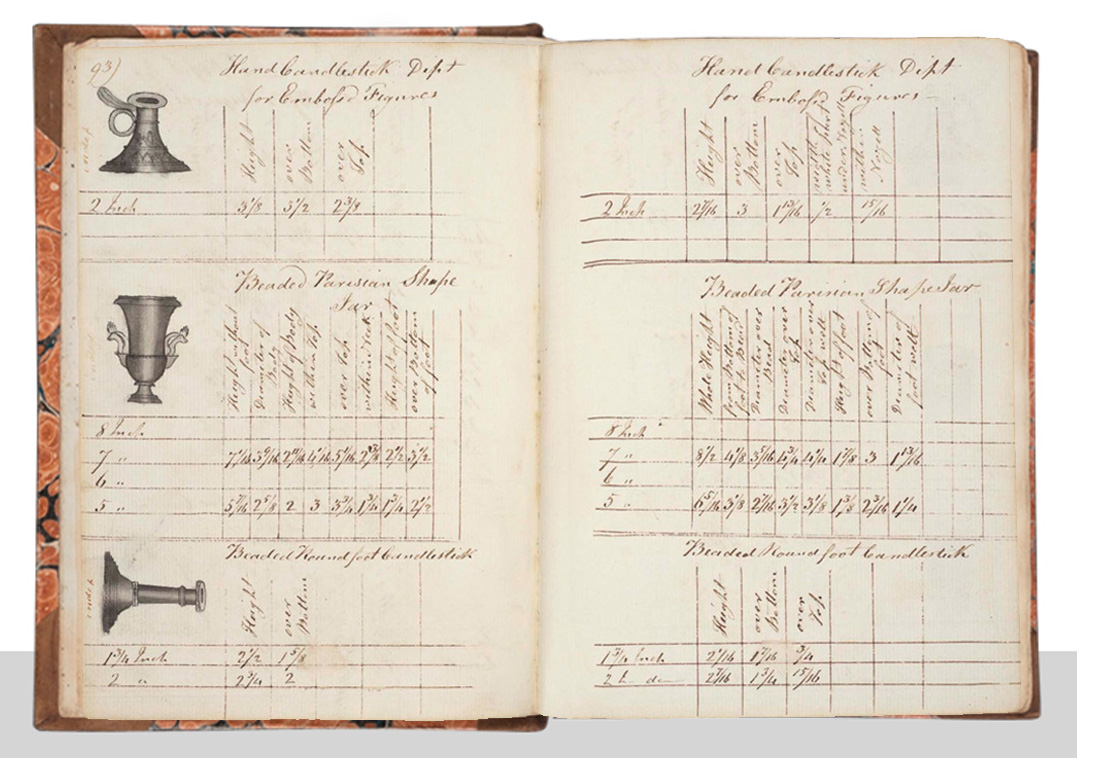 93)
Hand Candlestick Dept
for Embossd Figures
index
Height
over Bottom
over Top
2 Inch 3 1/8 3 1/2 2 3/8
Beaded Parisian Shape
Jar
Height without foot
Diameter of Body
Height of Body
within Top
over Top
within Neck
Height of foot
over Bottom of foot
8 Inch
7 "
6 "
5 " 2 5/8 2 3 2 1/2
Beaded Round foot Candlestick
index
Height
over Bottom
1 3/4 Inch 2 1/2 1 5/8
2 " 2 3/4 2
Hand Candlestick Dept
for Embossd Figures
Height
over Bottom
over Top
within Nozell
2 Inch 2 7/16 3 1 13/16 1/2 15/16
Beaded Parisian Shape Jar
Whole Height
from Bottom of foot to Bead
Diameter over Bead
Diameter over Top
Height of foot
over Bottom of foot
Diameter of foot well
8 Inch
7 " 8 1/2 4 1/8 4 3/4 4 1/4 1 7/8 3 1 13/16
6 "
5 " 6 5/16 3 1/8 2 7/16 3 1/2 3 1/8 1 3/8 2 3/16 1 1/4
Beaded Round foot Candlestick
Height
over Bottom
over Top
1 3/4 Inch 2 1/16 1 7/16 3/4
2 2 7/16 1 3/4 15/16